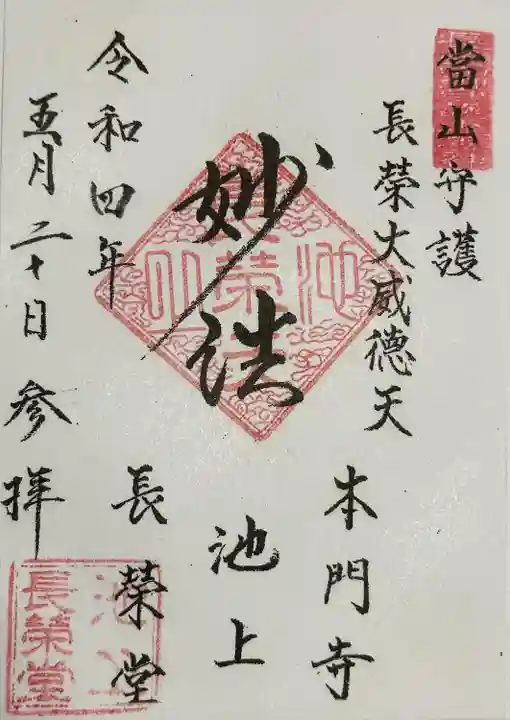 當山守護
長榮大威德天
本門寺
妙法
池上
長榮堂
令和四年
五月二十日参拝
池上
長榮堂